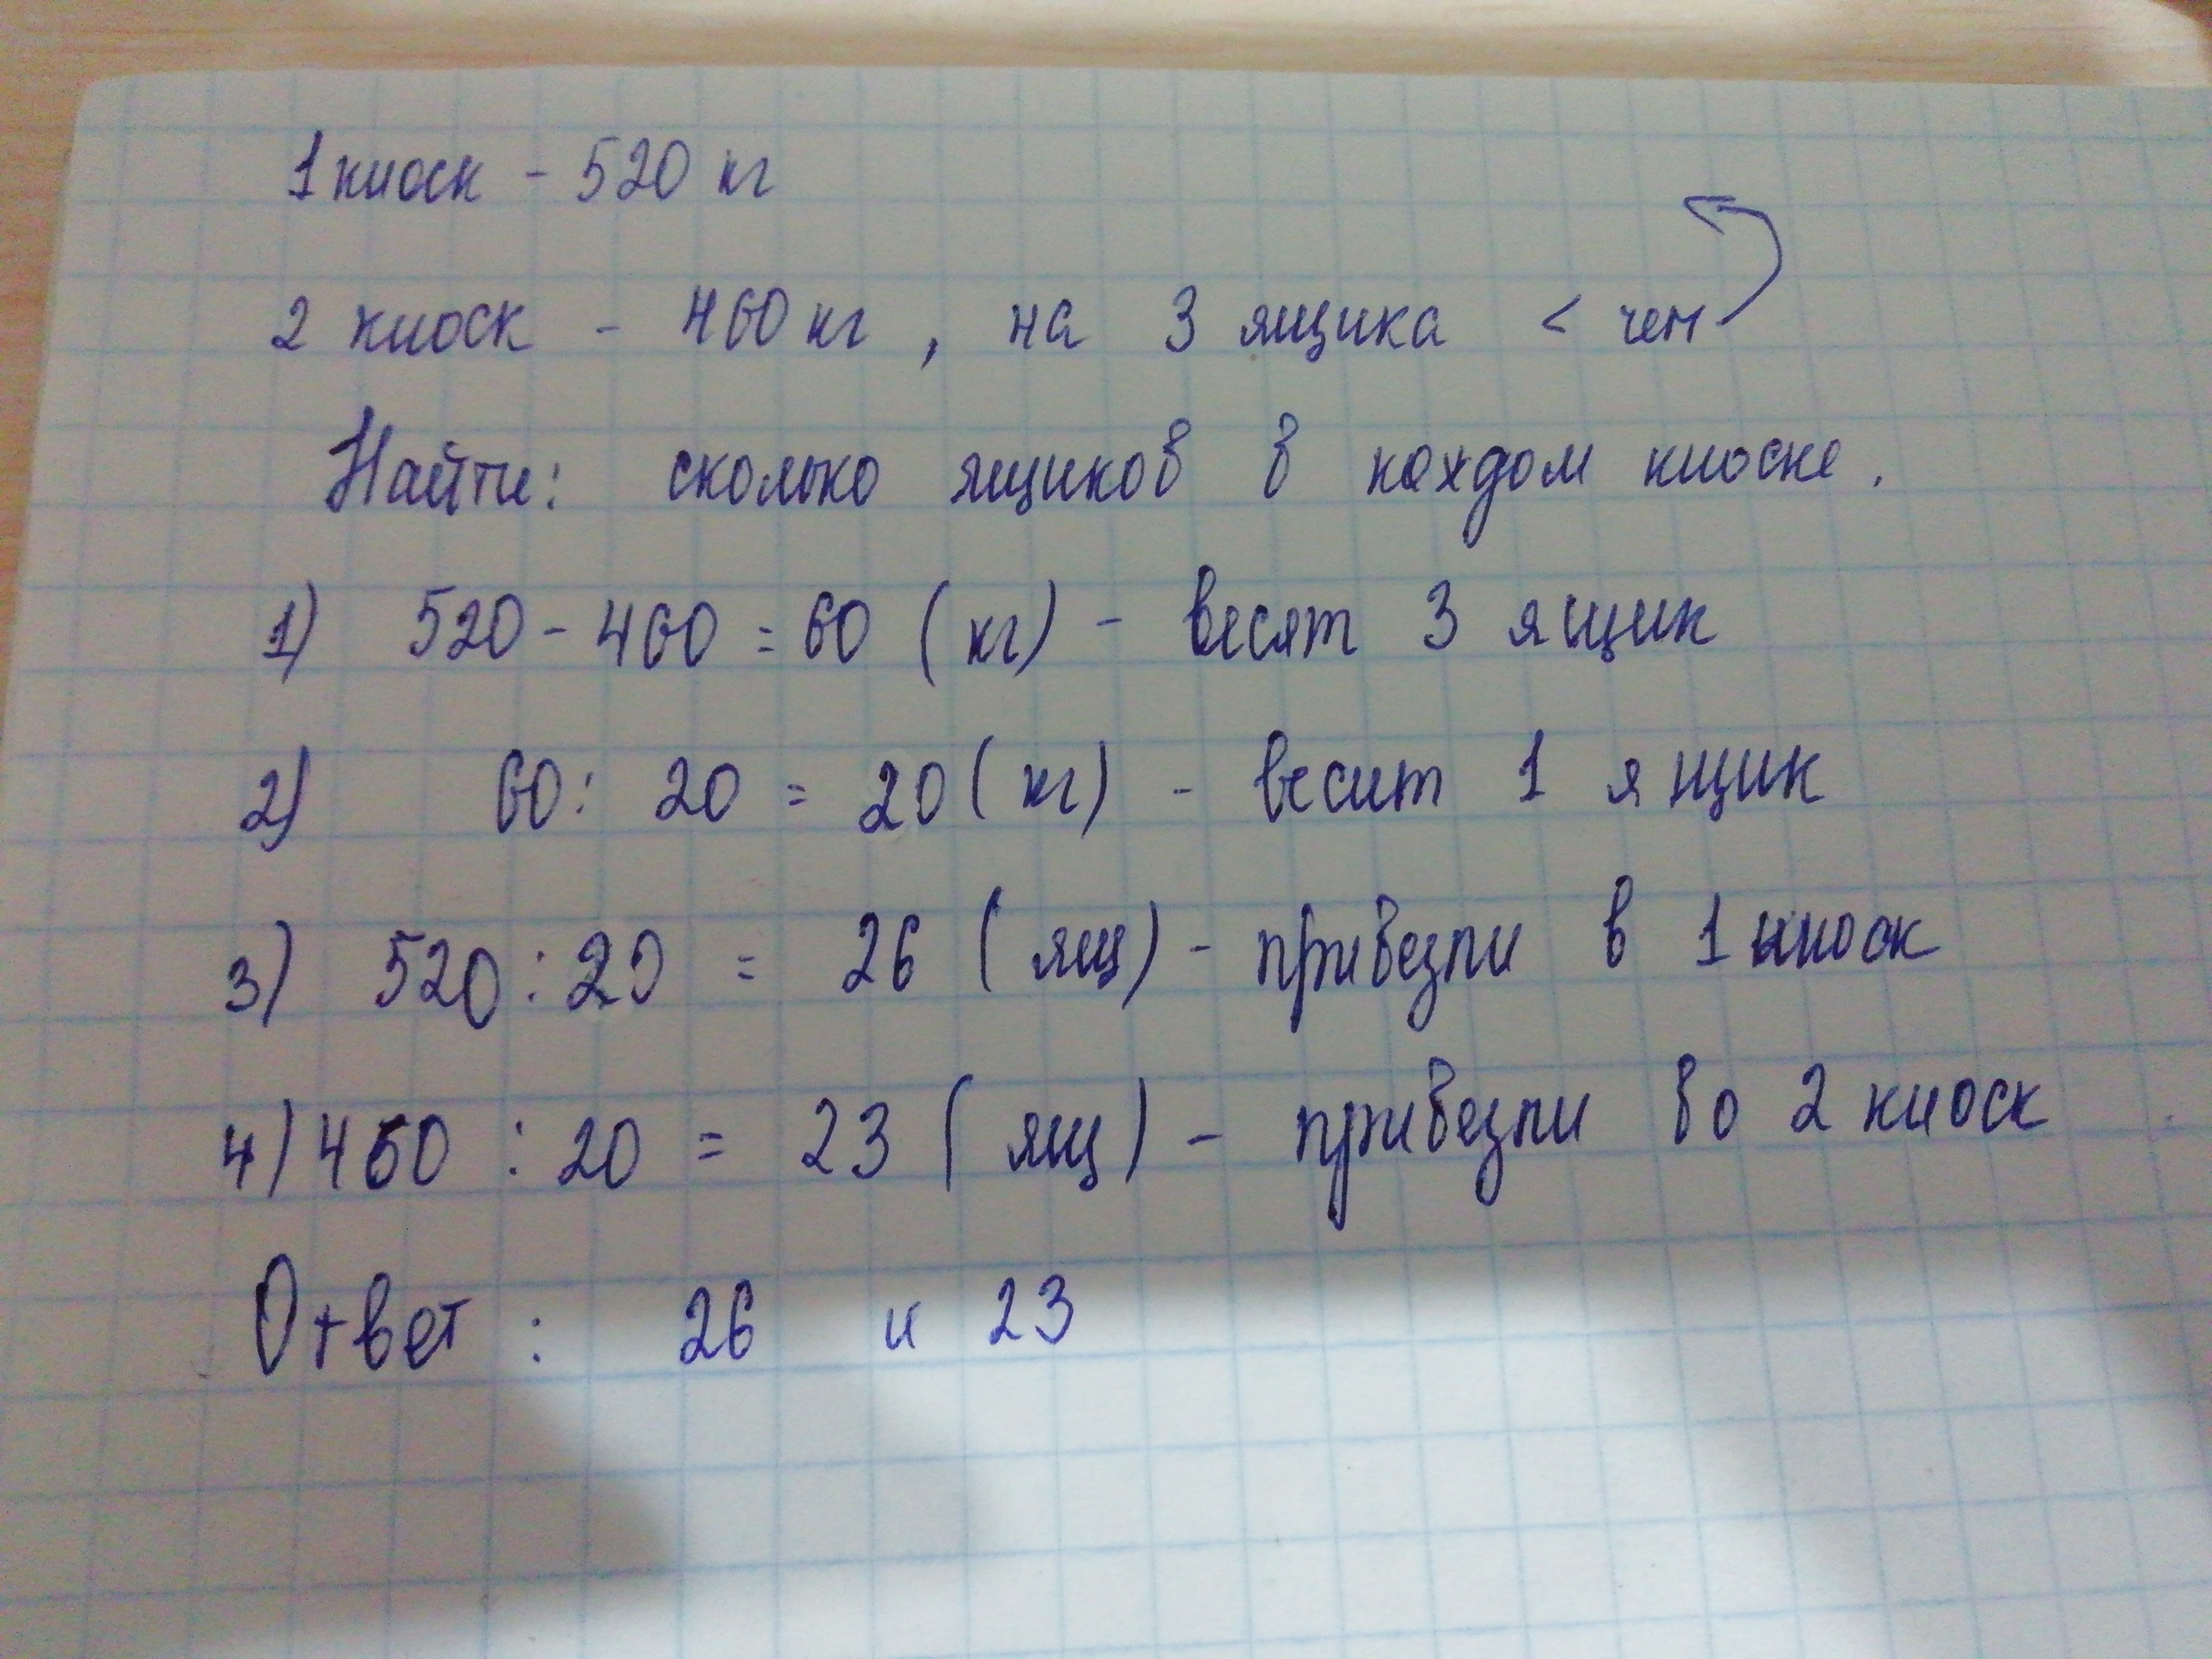 1 киоск - 520 кг
2 киоск - 460 кг, на 3 ящика < чем
Найти: сколько ящиков в каждом киоске.
1) 520 - 460 = 60 (кг) - весят 3 ящик
2) 60 : 20 = 20 (кг) - весит 1 ящик
3) 520 : 20 = 26 (ящ) - привезли в 1 киоск
4) 460 : 20 = 23 (ящ) - привезли во 2 киоск
Ответ : 26 и 23